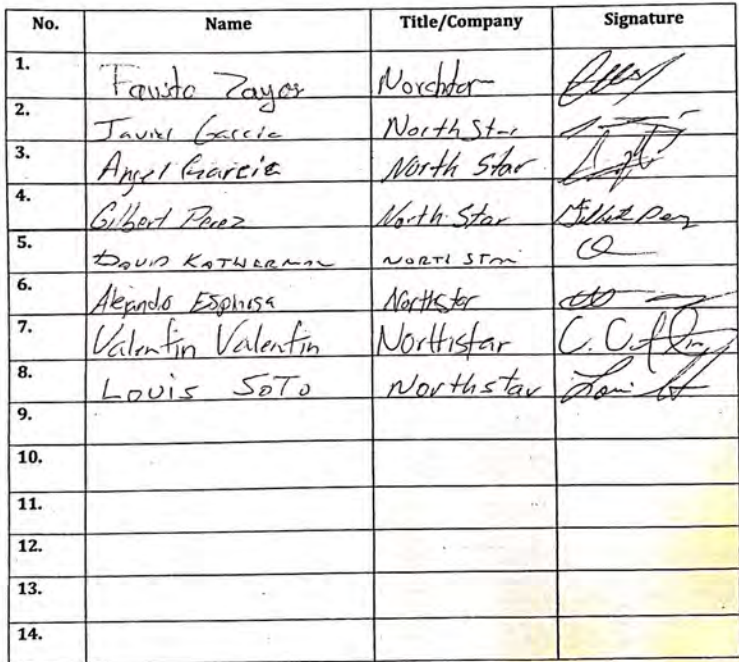 No. Name Title/Company Signature
1. Fausto Zayas Northstar
2. Javier Garcia North Star
3. Angel Garcia North Star
4. Gilbert Perez North Star Gilbert Perez
5. DAVID KATHERMAN NORTH STAR
6. Alejando Espinosa Northstar
7. Valentin Valentin Northstar
8. LOUIS SOTO Northstar
9.
10.
11.
12.
13.
14.